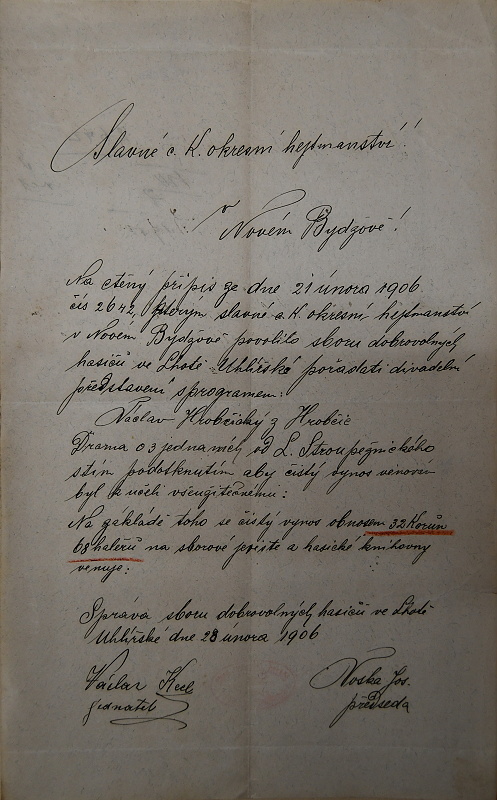 Slavné c. K. okresní hejtmanství!
v
Novém Bydzově!
Na ctěný přípis ze dne 21 února 1906
čís 2642, kterým slavné c. K. okresní hejtmanství
v Novém Bydzově povolilo sboru dobrovolných
hasičů ve Lhotě Uhlířské pořádati divadelní
představení sprogramem:
Václav Hrobčický z Hrobčic
Drama o 3 jednáních od L. Stroupežnického
stím podotknutím aby čistý výnos věnován
byl k účeli všeužitečnému:
Na základě toho se čistý vynos obnosem 32 Korun
68 haléřů na sborové pojiste a hasické knihovny
venuje:
Správa sboru dobrovolných hasičů ve Lhotě
Uhlířské dne 28 unora 1906
Václav
Noska Jos.
jednatel
předseda